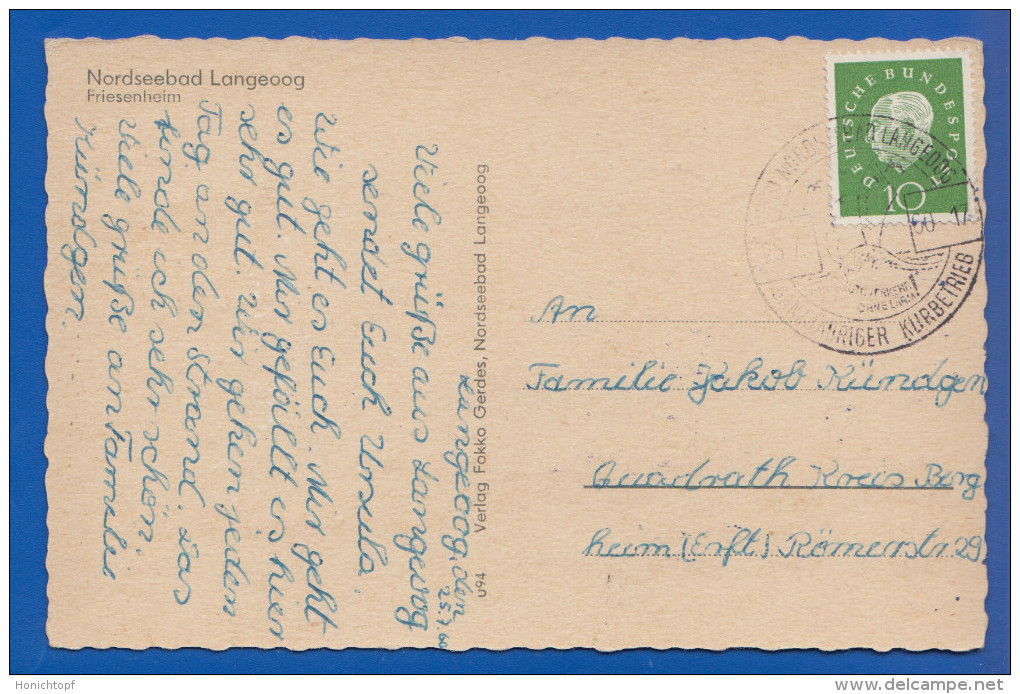 Nordseebad Langeoog
Friesenheim
Langeoog, den
25.7.60
Viele grüße aus Langeoog
sendet Euch Ursula
Wie geht es Euch. Mir geht
es gut. Mir gefällt es hier
sehr gut. Wir gehen jeden
Tag an den Strand. Das
finde ich sehr schön.
Viele grüße an Familie
Kündgen.
U94 Verlag Fokko Gerdes, Nordseebad Langeoog
DEUTSCHE BUNDESPOST
10
LANGEOOG
60 - 17
KURBETRIEB
An
Familie Jakob Kündgen
Quadrath Kreis Berg
heim (Erft) Römerstr 29
Honichtopf
delcampe.net